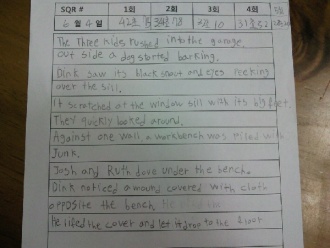 SQR # 1회 2회 3회 4회
6월 4일 42초 3분 10
The Three kids rushed into the garage.
out side a dog started barking.
Dink saw its black snout and eyes peeking
over the sill.
It scratched at the window sill with its big feet.
They quickly looked around.
Against one wall a workbench was piled with
Junk.
Josh and Ruth dove under the bench.
Dink noticed a mound covered with cloth
opposite the bench
He lifed the cover and let it drop to the floor